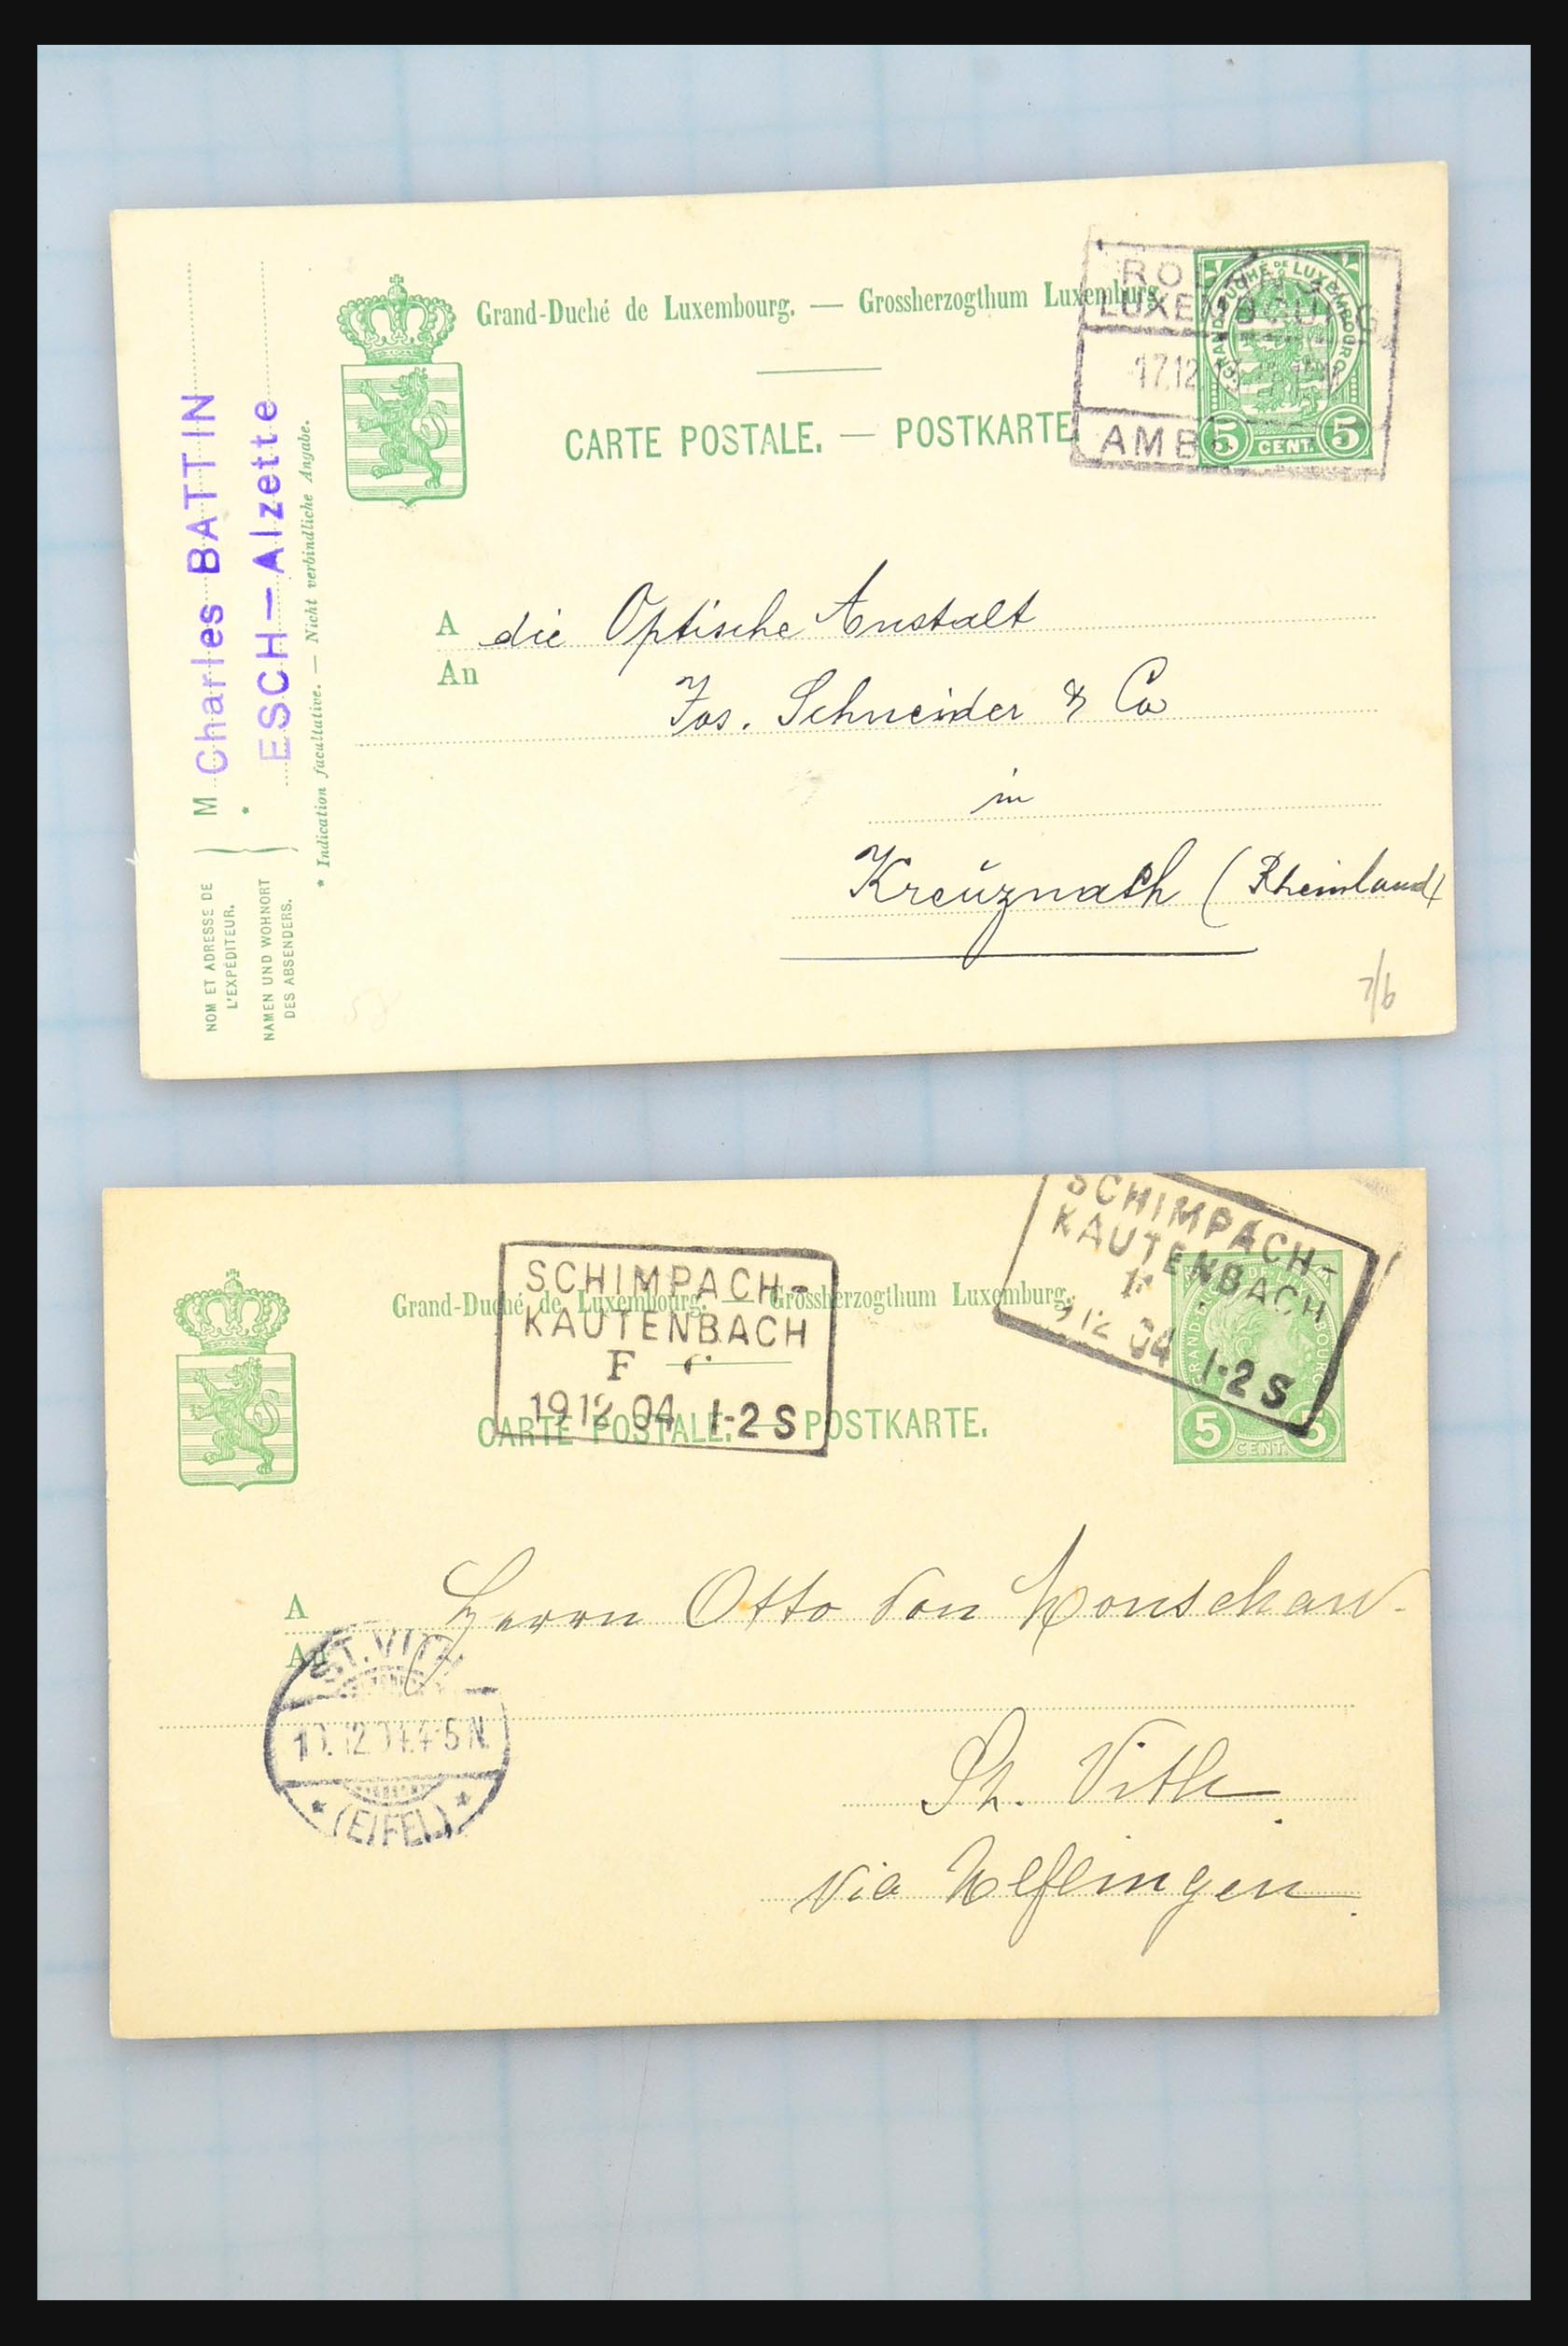 Grand-Duché de Luxembourg. — Grossherzogthum Luxemburg.
CARTE POSTALE. — POSTKARTE
LUXEMBOURG
17.12
AMB
GRAND-DUCHÉ DE LUXEMBOURG
5 CENT. 5
M Charles BATTIN
* ESCH-Alzette
* Indication facultative. — Nicht verbindliche Angabe.
NOM ET ADRESSE DE
L'EXPÉDITEUR.
NAMEN UND WOHNORT
DES ABSENDERS.
A die Optische Anstalt
An
Jos. Schneider & Co
in
Kreuznach (Rheinland)
7/6
SCHIMPACH-
KAUTENBACH
F
19 12 04 1-2 S
SCHIMPACH-
KAUTENBACH
12 04 1-2 S
Grand-Duché de Luxembourg. — Grossherzogthum Luxemburg.
CARTE POSTALE. — POSTKARTE.
5 CENT. 5
A Herrn Otto von Monschaw.
An
ST. VITH
12.04.4-5N.
* (EIFEL) *
St. Vith
via Ulflingen.